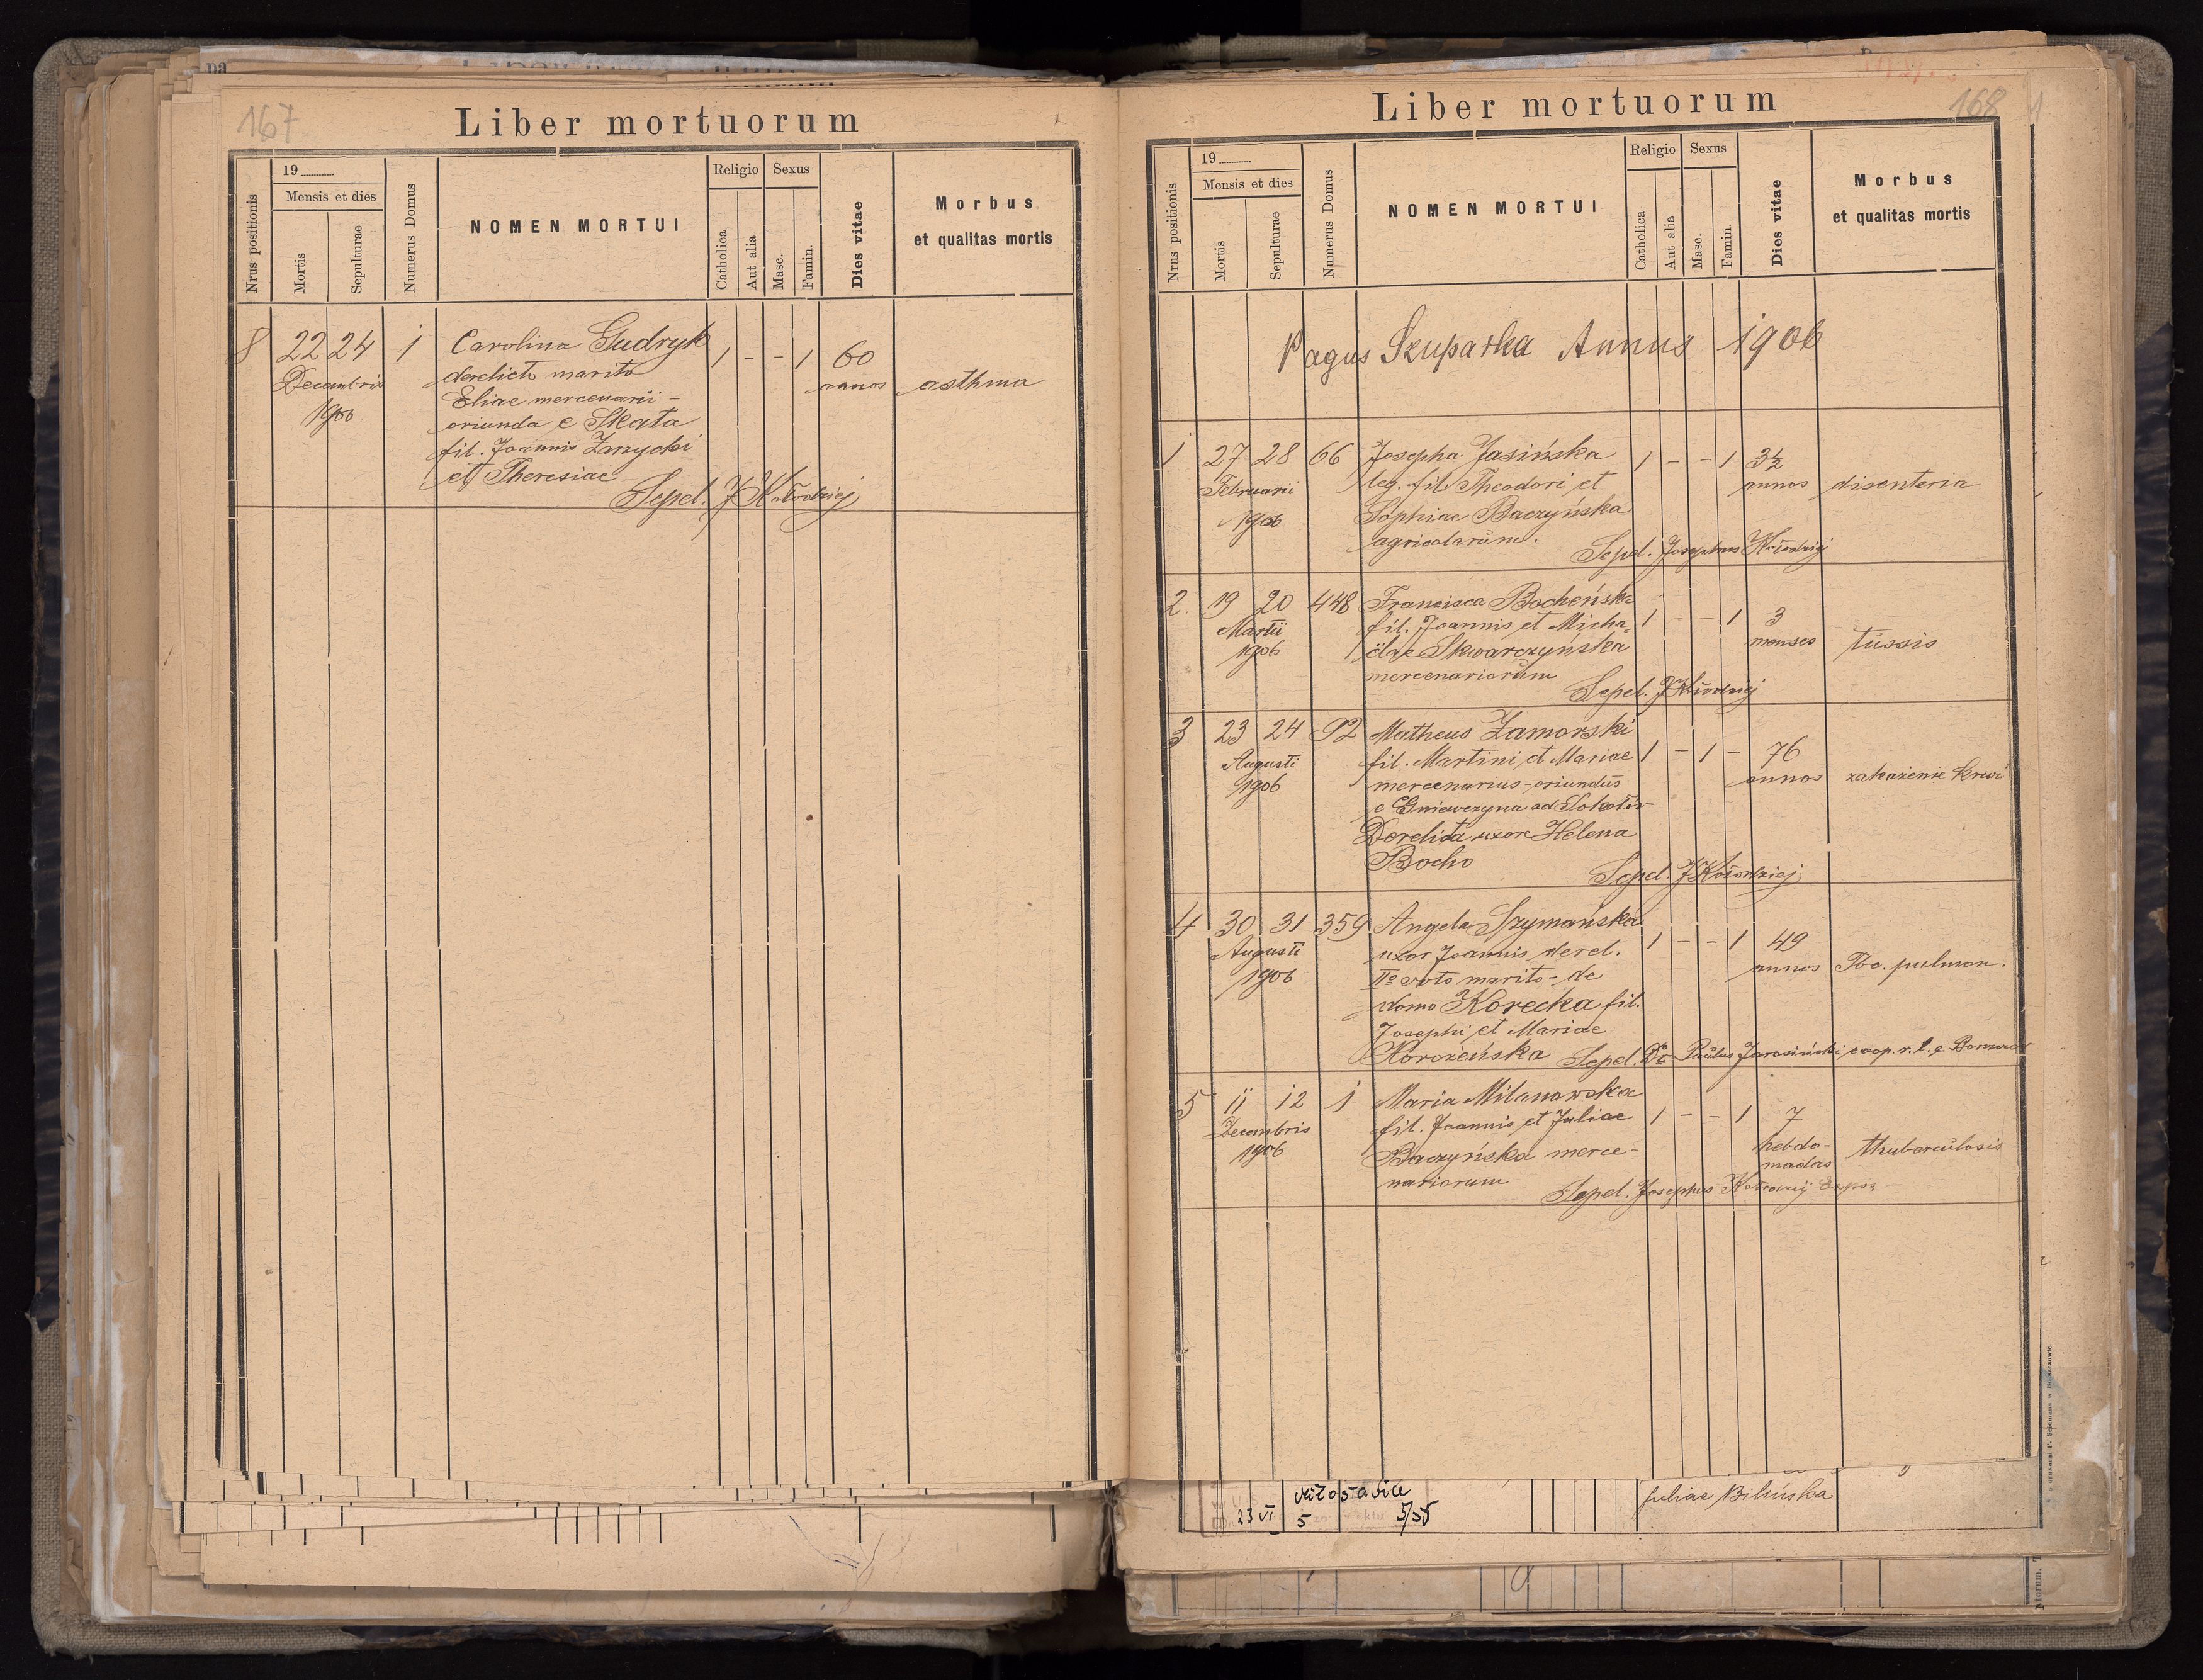 167
Liber mortuorum
Nrus positionis
19
Mensis et dies
Mortis
Sepulturae
Numerus Domus
NOMEN MORTUI
Religio
Catholica
Aut alia
Sexus
Masc.
Famin.
Dies vitae
Morbus
et qualitas mortis
8 22 24 1 Carolina Gudryk 1 - - 1 60
Decembris derelicto marito annos asthma
1906 Eliae mercenarii -
oriunda e Skata
fil. Joannis Zarzycki
et Theresiae
Sepel. J Kołodziej
168
Liber mortuorum
Nrus positionis
19
Mensis et dies
Mortis
Sepulturae
Numerus Domus
NOMEN MORTUI
Religio
Catholica
Aut alia
Sexus
Masc.
Famin.
Dies vitae
Morbus
et qualitas mortis
Pagus Szuparka Annus 1906
1 27 28 66 Josepha Jasińska 1 - - 1 3½
Februarii leg. fil. Theodori et annos disenteria
1906 Sophiae Baczyńska
agricolarum.
Sepel. Josephus Kołodziej
2. 19 20 448 Francisca Bocheńska
Martii fil. Joannis et Micha- 1 - - 1 3
1906 ëlae Skwarczyńska menses tussis
mercenariorum
Sepel. J Kołodziej
3 23 24 92 Matheus Zamorski
Augusti fil. Martini et Mariae 1 - 1 - 76
1906 mercenarius - oriundus annos zakażenie krwi
e Gniewczyna ad Sokołów
Derelicta uxore Helena
Bocho
Sepel. J Kołodziej
4 30 31 359 Angela Szymańska
Augusti uxor Joannis derel. 1 - - 1 49
1906 IIo voto marito - de annos Tbc. pulmon.
domo Korecka fil.
Josephi et Mariae
Korożeńska Sepel. Paulus Jarosiński coop. r. l. e
5 11 12 1 Maria Milanowska
Decembris fil. Joannis et Juliae 1 - - 1 7
1906 Baczyńska merce- hebdo- thuberculosis
nariorum madas
Sepel. Josephus Kołodziej Expos
23 VI 5 5/35
Juliae Bilińska